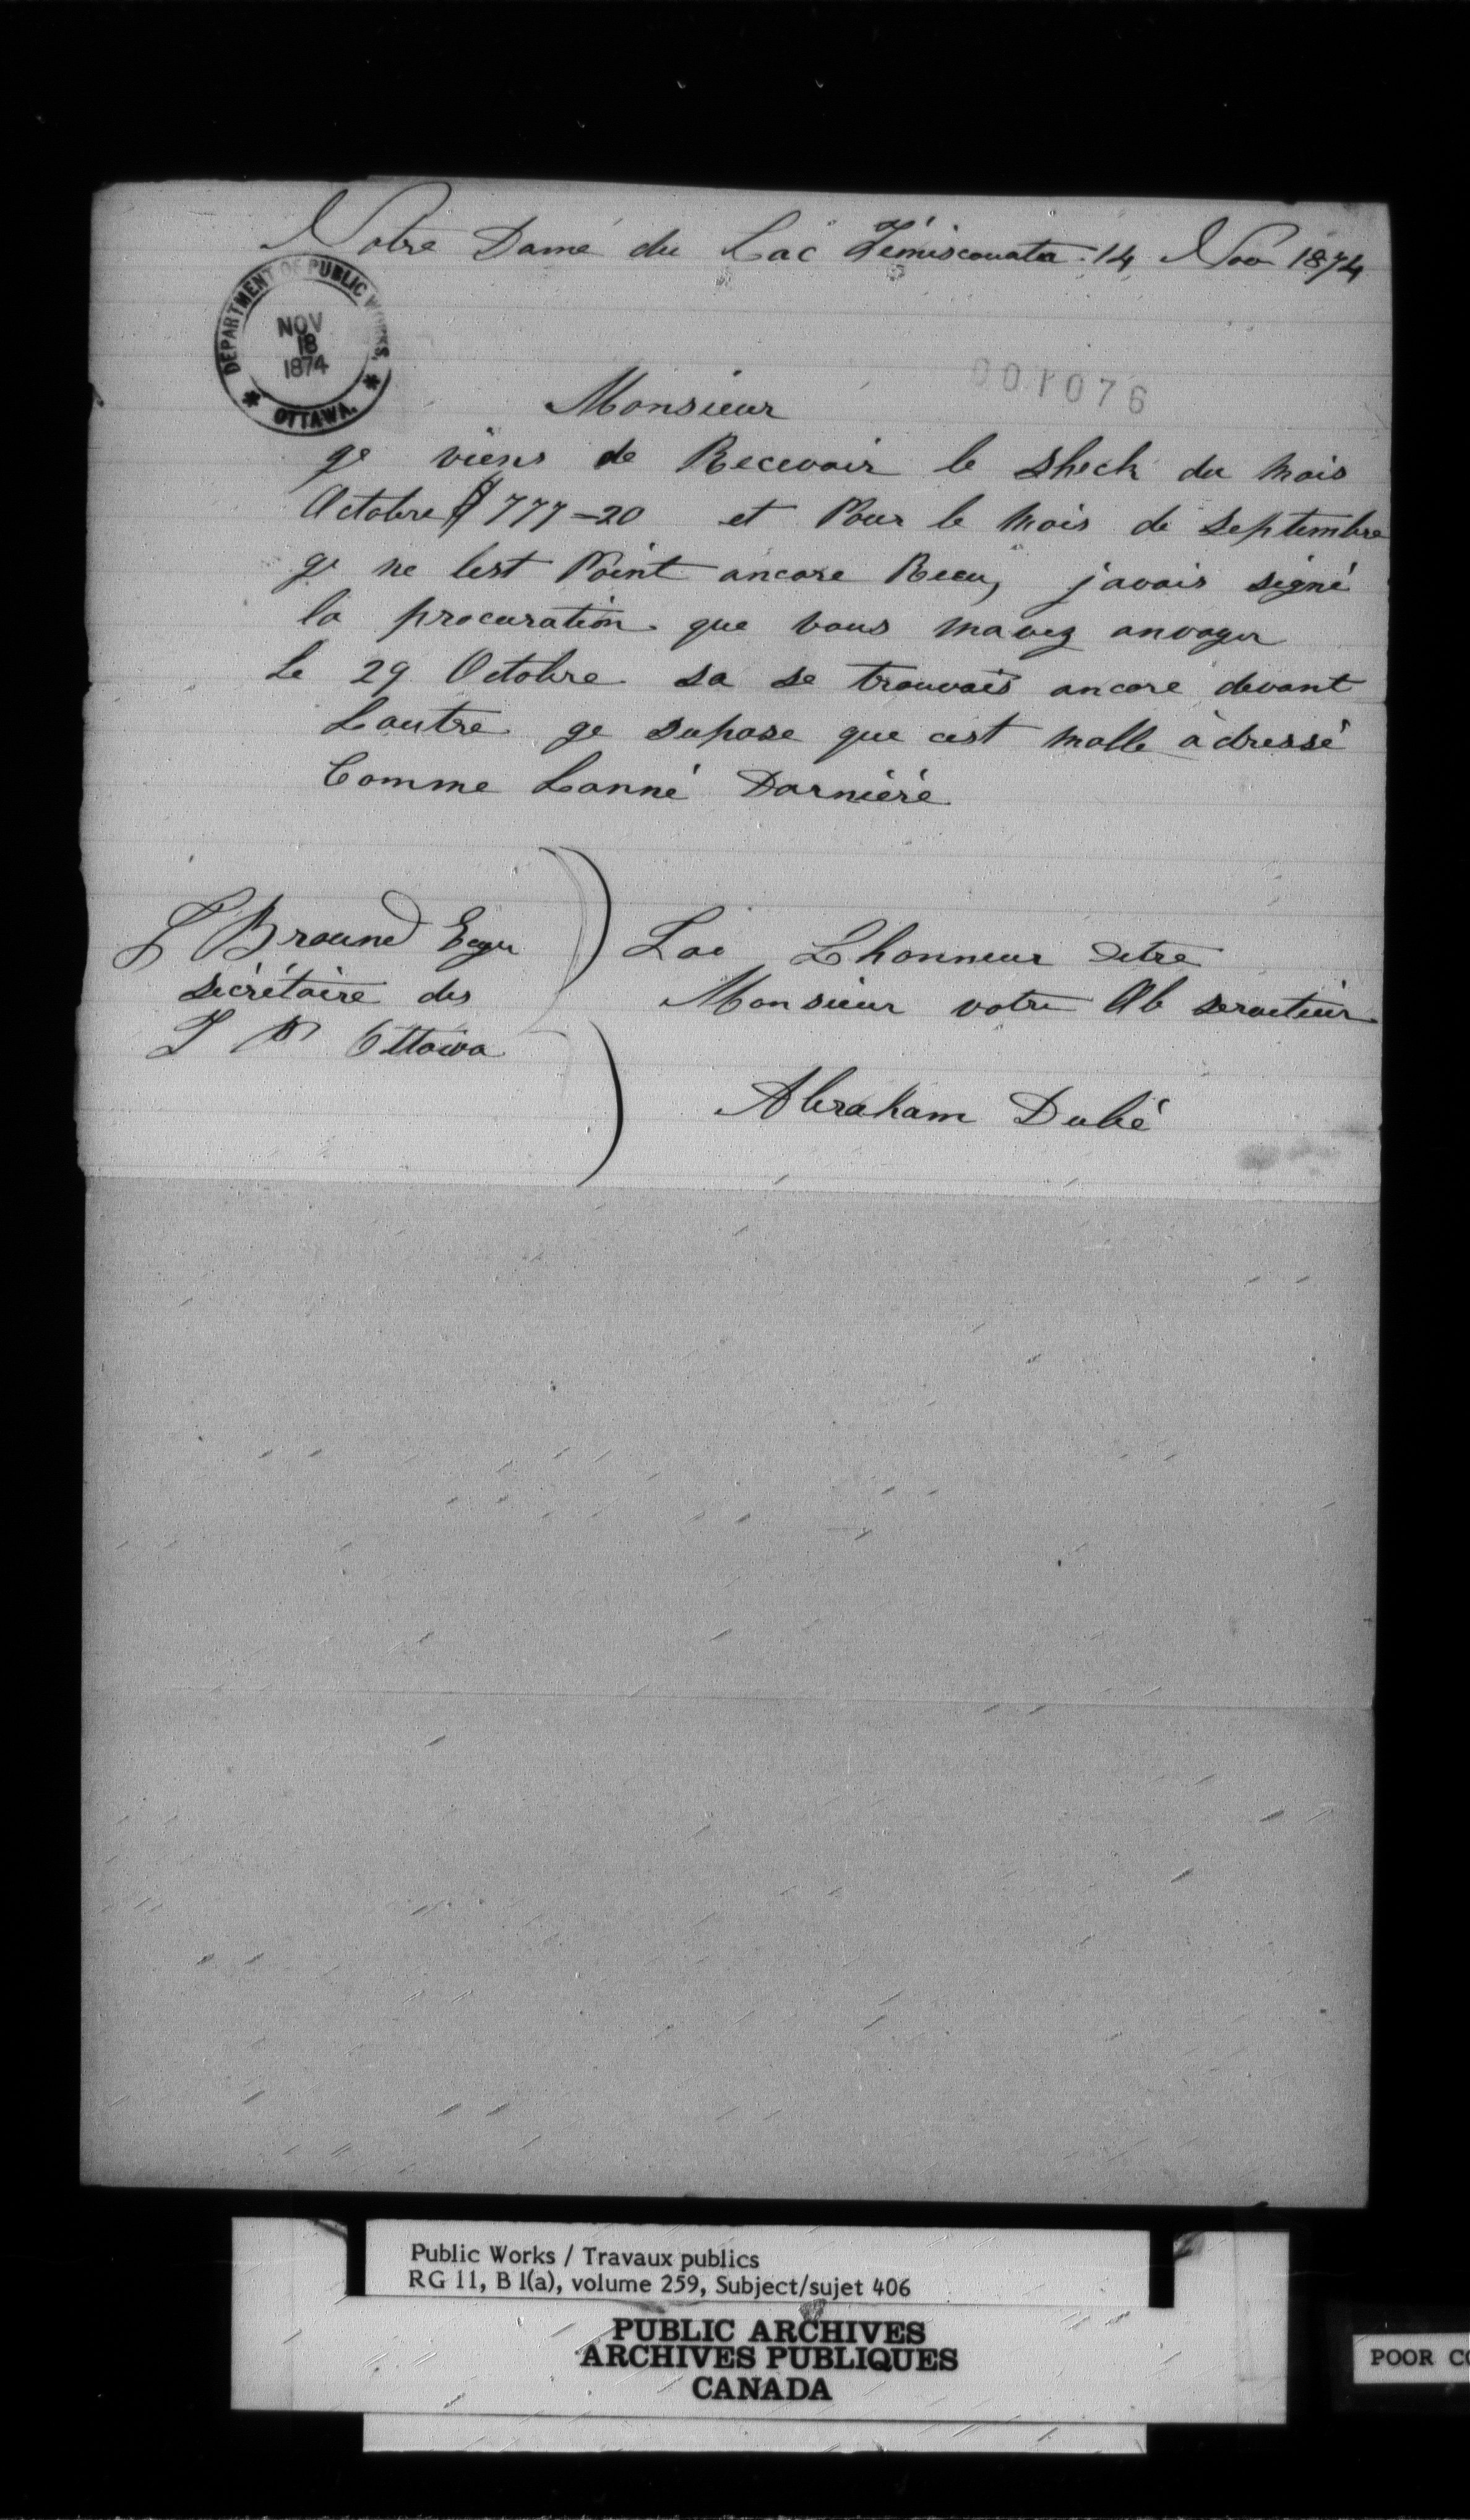 Notre Damé du Lac Témiscouata 14 Nov 1874
DEPARTMENT OF PUBLIC WORKS,
NOV
18
1874
OTTAWA.
001076
Monsieur
ge viens de Recevoir le sheck du mois
Octobre $777=20 et Pour le mois de septembre
ge ne lest Point ancore Recu, javais signé
la procuration que vous mavez anvoyer
Le 29 Octobre sa se trouvais ancore devant
Lautre ge supose que cest malle adressé
Comme Lanné Darniéré
F Braund Eqyr
secrétaire des
T P Ottawa
Lai Lhonneur detre
Monsieur votre Ob serviteur
Abraham Dubé
Public Works / Travaux publics
RG 11, B 1(a), volume 259, Subject/sujet 406
PUBLIC ARCHIVES
ARCHIVES PUBLIQUES
CANADA
POOR